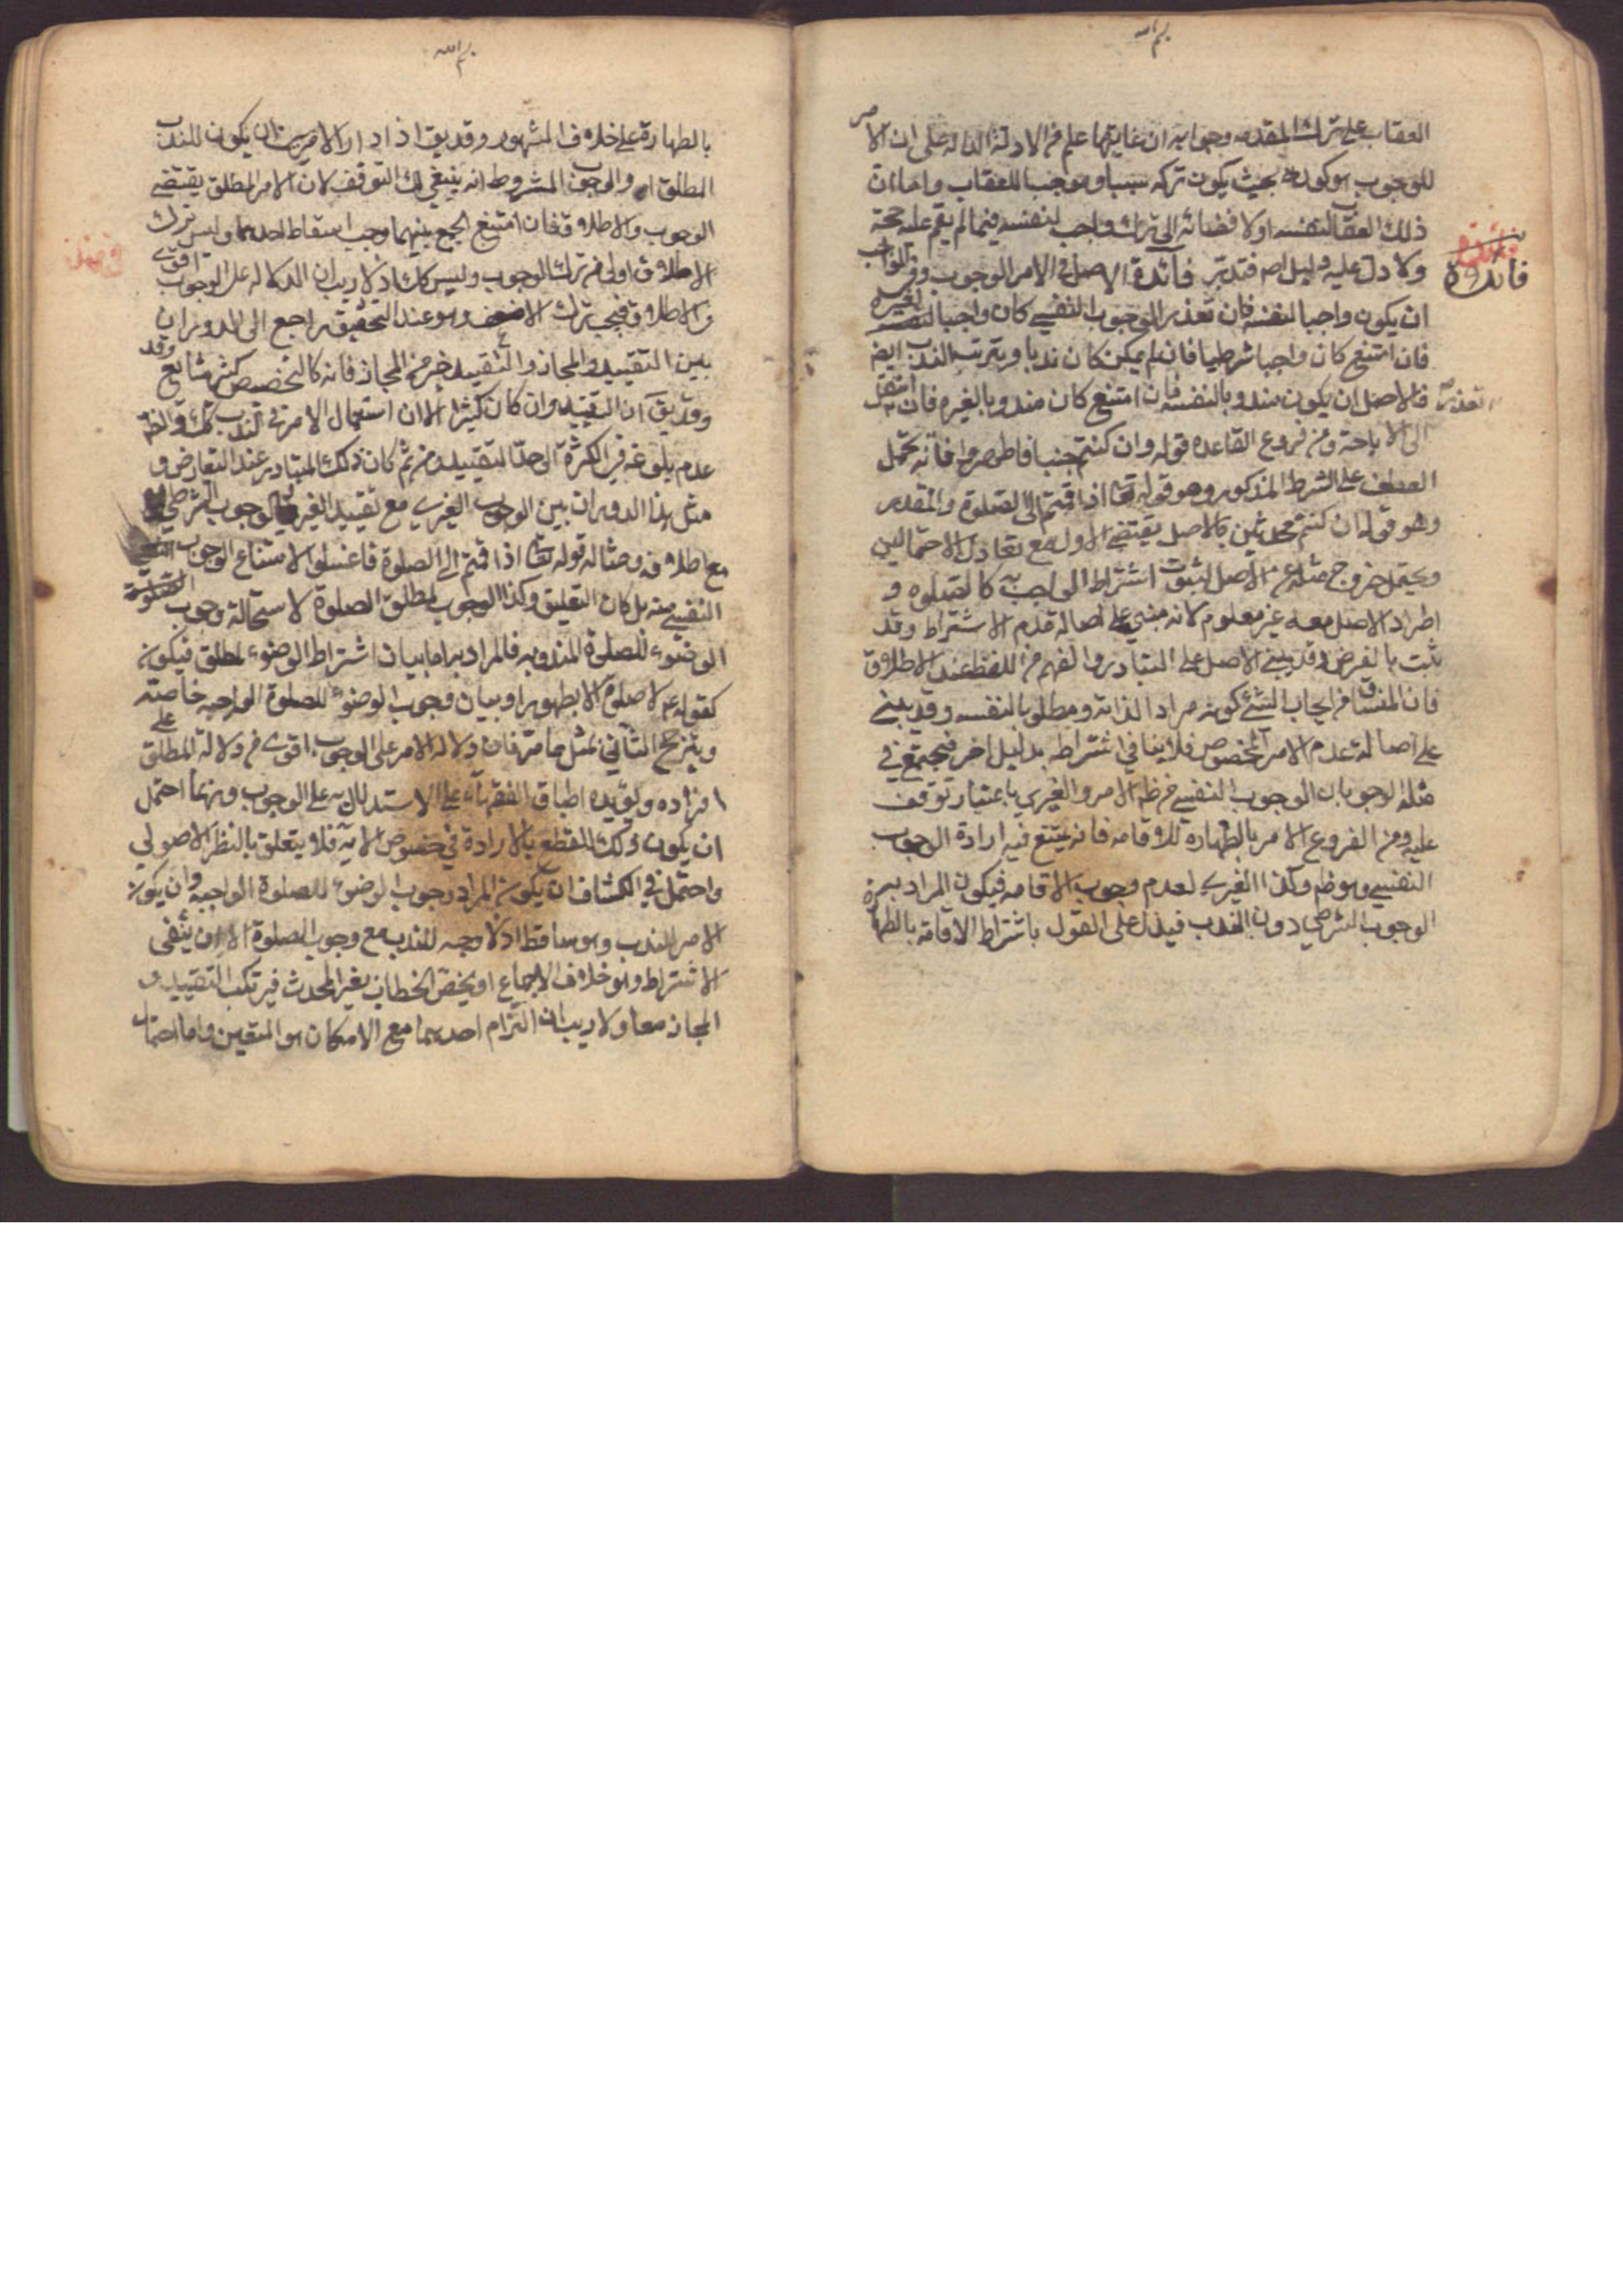 بسم الله
العقاب على ترك المقدمه وجوابه ان غايتها علم من الادلة الداله على ان الامر
للوجوب هو كونه بحيث يكون تركه سببا وموجبا للعقاب واما ان
ذلك العقاب لنفسه او لافضائه الى ترك واجب لنفسه فيما لم يقم عليه حجة
ولا دل عليه دليل اصم فتدبر فائدة الاصل في الامر الوجوب وفي الواجب
فائدة
ان يكون واجبا لنفسه فان تعذر الوجوب النفسي كان واجبا لغيره
فان امتنع كان واجبا شرطيا فان لم يمكن كان ندبا ويترتب الندب ايضا
تعذر فالاصل ان يكون مندوبا لنفسه فان امتنع كان مندوبا لغيره فان انتقل
الى الاباحة ومن فروع القاعده قوله وان كنتم جنبا فاطهروا فانه يحتمل
العطف على الشرط المذكور وهو قوله تعا اذا قمتم الى الصلوة والمقدر
وهو قوله ان كنتم محدثين فالاصل يقتضي الاول مع تعادل الاحتمالين
ويحتمل خروج مثله عن الاصل لثبوت اشتراط الواجب به كالصلوه و
اطراد الاصل معه غير معلوم لانه مبني على اصالة عدم الاشتراط وقد
ثبت بالفرض وقد يبنى الاصل على التبادر والفهم من اللفظ عند الاطلاق
فان المنساق من ايجاب الشئ كونه مرادا لذاته ومطلوبا لنفسه وقد يبنى
على اصالة عدم الامر الخصوص فلا ينافي اشتراطه بدليل اخر فيجتمع في
مثله الوجوبان الوجوب النفسي من ظ الامر والغيري باعتبار توقف
عليه ومن الفروع الامر بالطهاره للاقامه فانه يمتنع فيه ارادة الوجوب
النفسي وهو ظم وكذا الغيري لعدم وجوب الاقامه فيكون المراد به
الوجوب الشرطي دون الندب فيدل على القول باشتراط الاقامة بالطهارة
بسم الله
بالطهارة على خلاف المشهور وقد يق اذا دار الامر بين ان يكون للندب
المطلق او الوجوب المشروط انه ينبغي لك التوقف لان الامر المطلق يقتضي
الوجوب والاطلاق فان امتنع الجمع بينهما وجب اسقاط احدهما وليس ترك
الاطلاق اولى من ترك الوجوب وليس كك اذ لا ريب ان الدلاله على الوجوب اقوى
من الاطلاق فيجب ترك الاضعف وهو عند التحقيق راجع الى الدوران
بين التقييد والمجاز والتقييد خير من المجاز فانه كالتخصيص كثير شايع وقد
وقد يق ان التقييد وان كان كثيرا الا ان استعمال الامر في الندب كك والظ
عدم بلوغه في الكثرة الى حد التقييد ومن ثم كان ذلك المتبادر عند التعارض و
مثل هذا الدوران بين الوجوب الغيري مع تقييد الغير والوجوب الشرطي
مع اطلاقه ومثاله قوله تعا اذا قمتم الى الصلوة فاغسلوا لامتناع الوجوب
النفسي منه بل كان التعليق وكذا الوجوب لمطلق الصلوة لاستحالة وجوب
الوضوء للصلوة المندوبه فالمراد به اما بيان اشتراط الوضوء لمطلق فيكون
كقوله ع لا صلوة الا بطهور او بيان وجوب الوضوء للصلوة الواجبه خاصة
ويترجح الثاني بمثل ما مر فان دلالة الامر على الوجوب اقوى من دلالة المطلق على
افراده ويؤيده اطباق الفقهاء على الاستدلال به على الوجوب وربما احتمل
ان يكون ذلك للقطع بالارادة في خصوص الايه فلا يتعلق بالنظر الاصولي
واحتمل في الكشاف ان يكون المراد وجوب الوضوء للصلوة الواجبه وان يكون
الامر للندب وهو ساقط اذ لا وجه للندب مع وجوب الصلوة الا ان ينفى
الاشتراط وهو خلاف الاجماع او يخص الخطاب بغير المحدث فيرتكب التقييد و
المجاز معا ولا ريب ان التزام احدهما مع الامكان هو المتعين واما احتمال